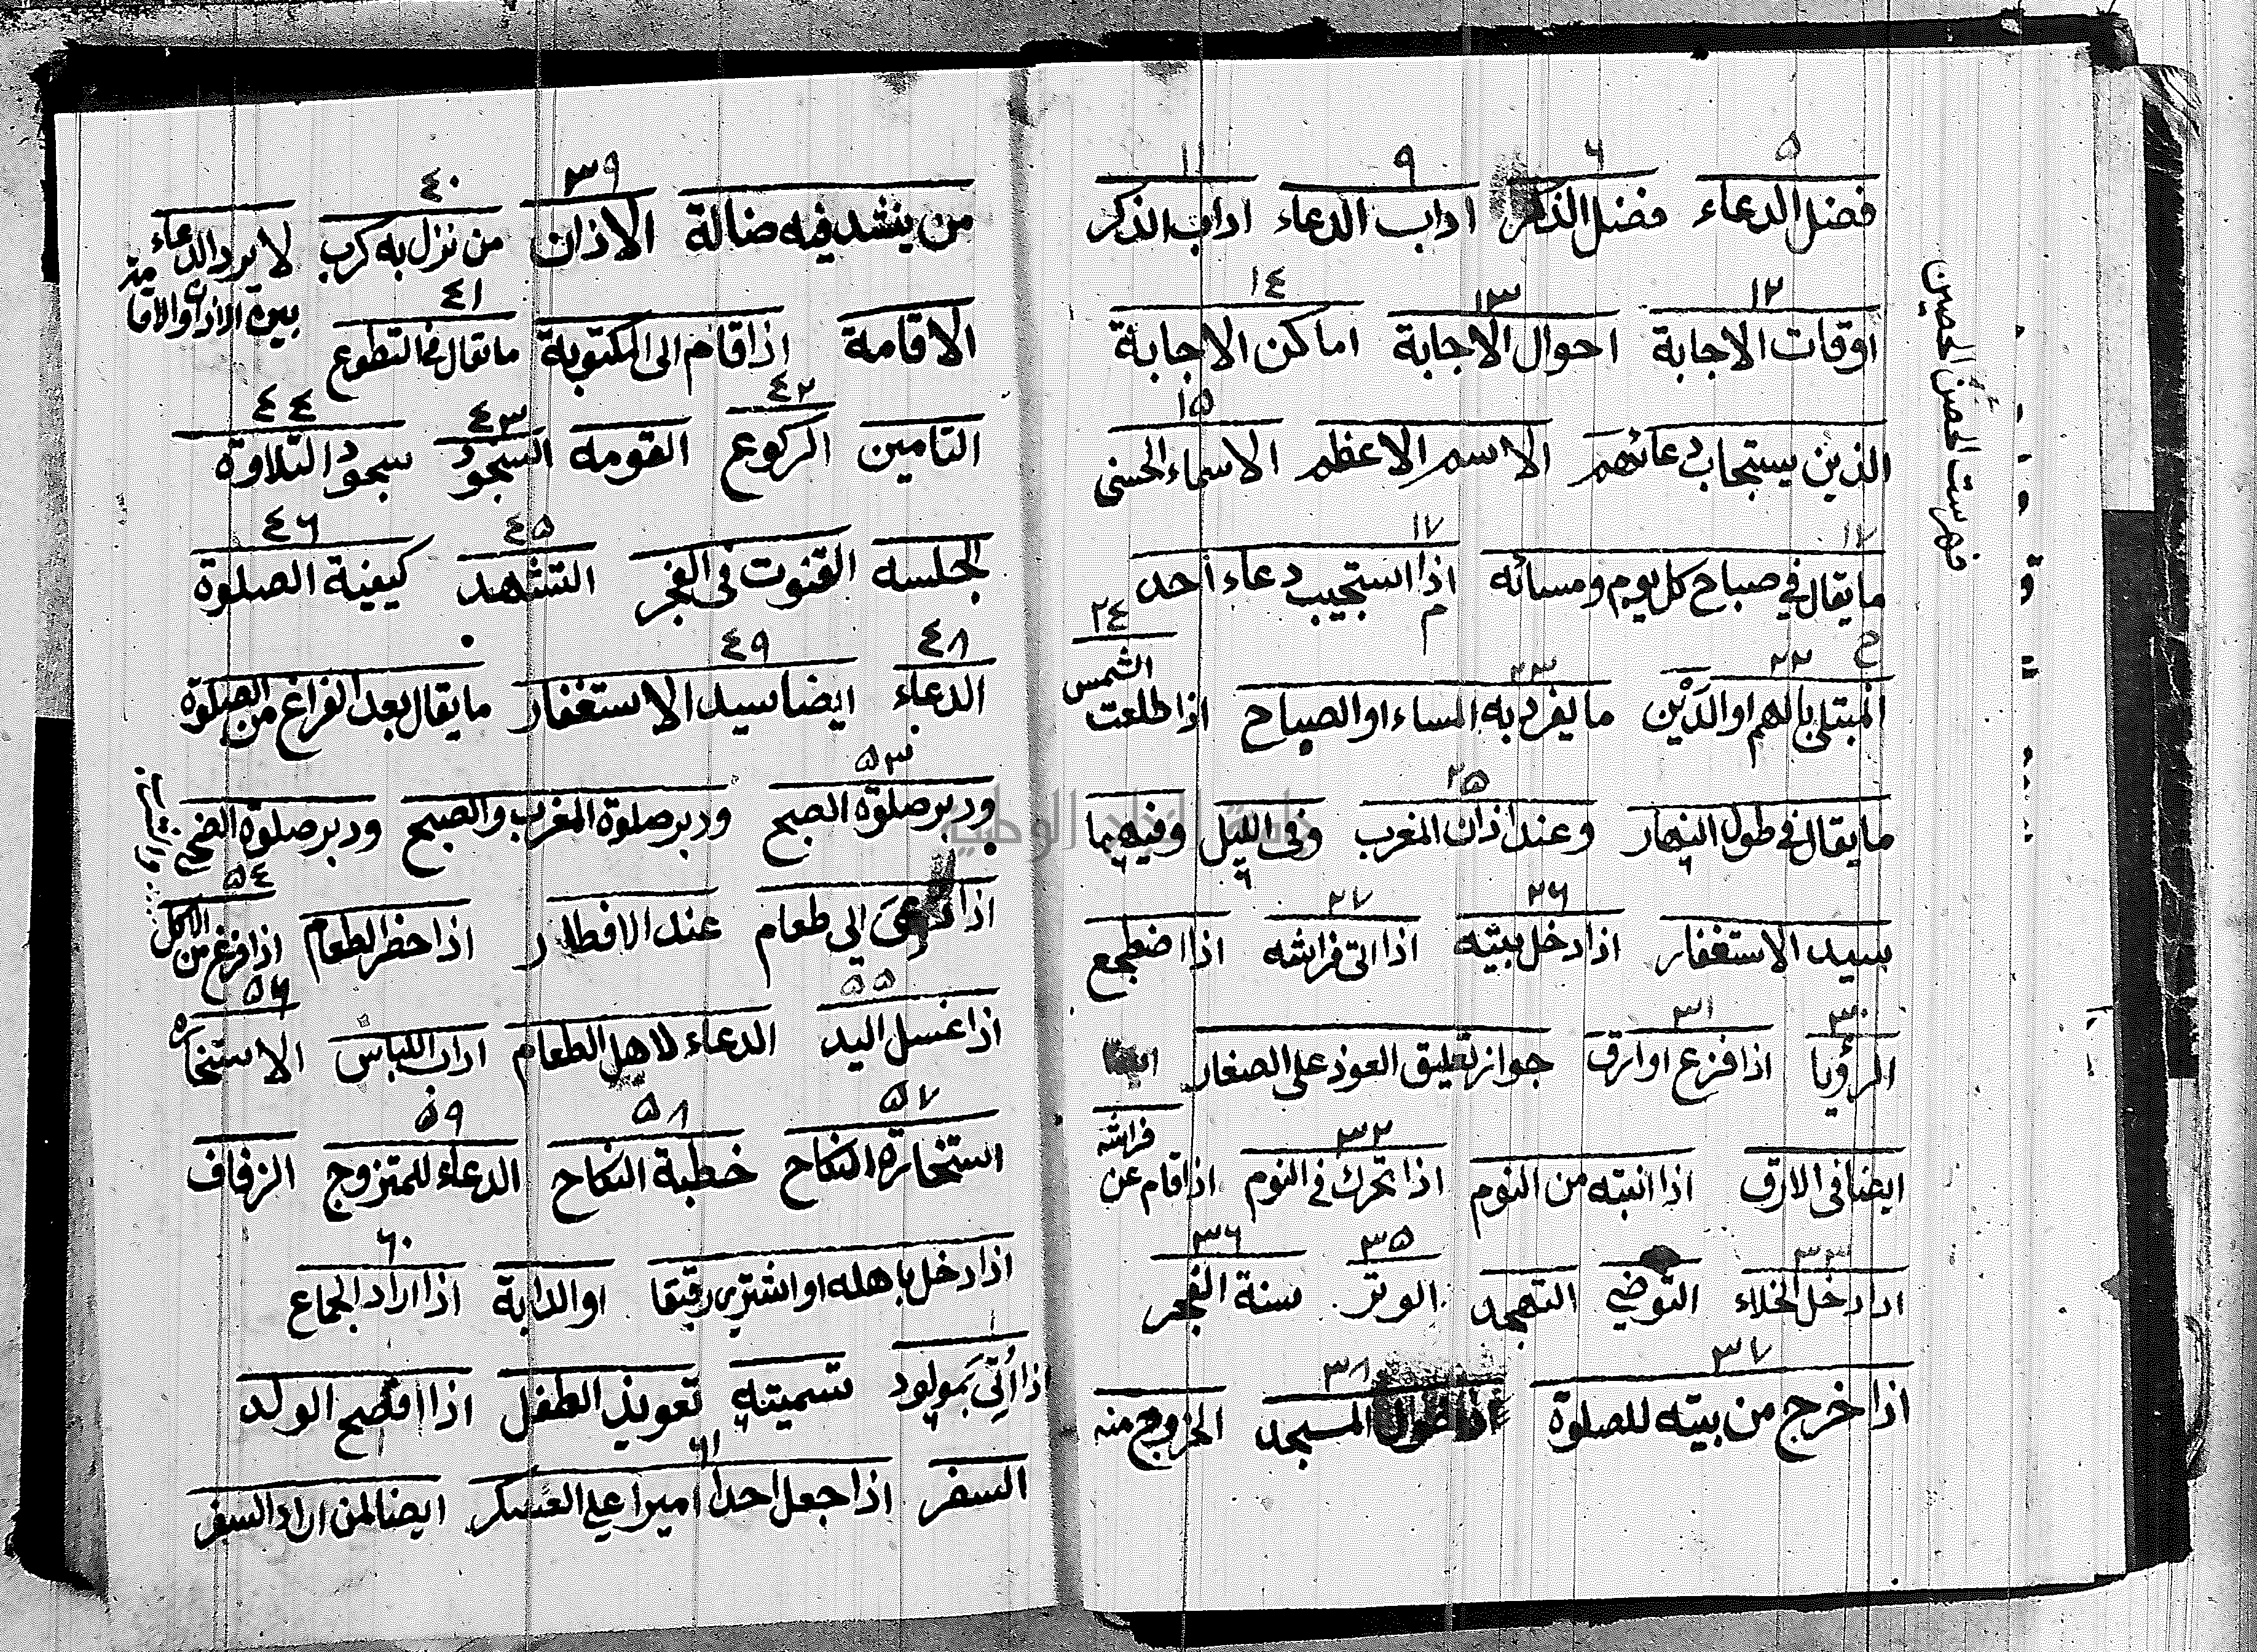 فهرست الحصن الحصين
٥ ٦ ٩ ١١
فضل الدعاء فضل الذكر اداب الدعاء اداب الذكر
١٢ ١٣ ١٤
اوقات الاجابة احوال الاجابة اماكن الاجابة
١٥
الذين يستجاب دعائهم الاسم الاعظم الاسماء الحسنى
١٧ ١٧
ما يقال في صباح كل يوم ومسائه اذا استجيب دعاء احد
٢٢ ٢٣ ٢٤
المبتلى بالهم او الدَيْن ما يفرد به المساء او الصباح اذا طلعت الشمس
٢٥
ما يقال في طول النهار وعند اذان المغرب وفي الليل وفيهما
٢٦ ٢٧
سيد الاستغفار اذا دخل بيته اذا اتى فراشه اذا اضطجع
٣٠ ٣١
الرؤيا اذا فزع او ارق جواز تعليق العوذ على الصغار
٣٢
ايضا في الارق اذا انتبه من النوم اذا تحرك في النوم اذا قام عن فراشه
٣٣ ٣٥ ٣٦
اذا دخل الخلاء التوضي التهجد الوتر سنة الفجر
٣٧ ٣٨
اذا خرج من بيته للصلوة المسجد الخروج منه
٣٩ ٤٠
من ينشد فيه ضالة الاذان من نزل به كرب لا يرد الدعاء بين الاذان والاقامة
٤١
الاقامة اذا قام الى المكتوبة ما يقال في التطوع
٤٢ ٤٣ ٤٤
التامين الركوع القومه السجود سجود التلاوة
٤٥ ٤٦
الجلسه القنوت في الفجر التشهد كيفية الصلوة
٤٨ ٤٩
الدعاء ايضا سيد الاستغفار ما يقال بعد الفراغ من الصلوة
٥٣
ودبر صلوة الصبح ودبر صلوة المغرب والصبح ودبر صلوة الضحى
٥٤
اذا دعى الى طعام عند الافطار اذا حضر الطعام اذا فرغ من الاكل
٥٥ ٥٦
اذا غسل اليد الدعاء لاهل الطعام اداب اللباس الاستخاره
٥٧ ٥٨ ٥٩
استخارة النكاح خطبة النكاح الدعاء للمتزوج الزفاف
٦٠
اذا دخل باهله او اشترى رقيقا او الدابة اذا اراد الجماع
اذا اُتِىَ بمولود تسميته تعويذ الطفل اذا افصح الولد
٦١
السفر اذا جعل احدا اميرا على العسكر ايضا لمن اراد السفر